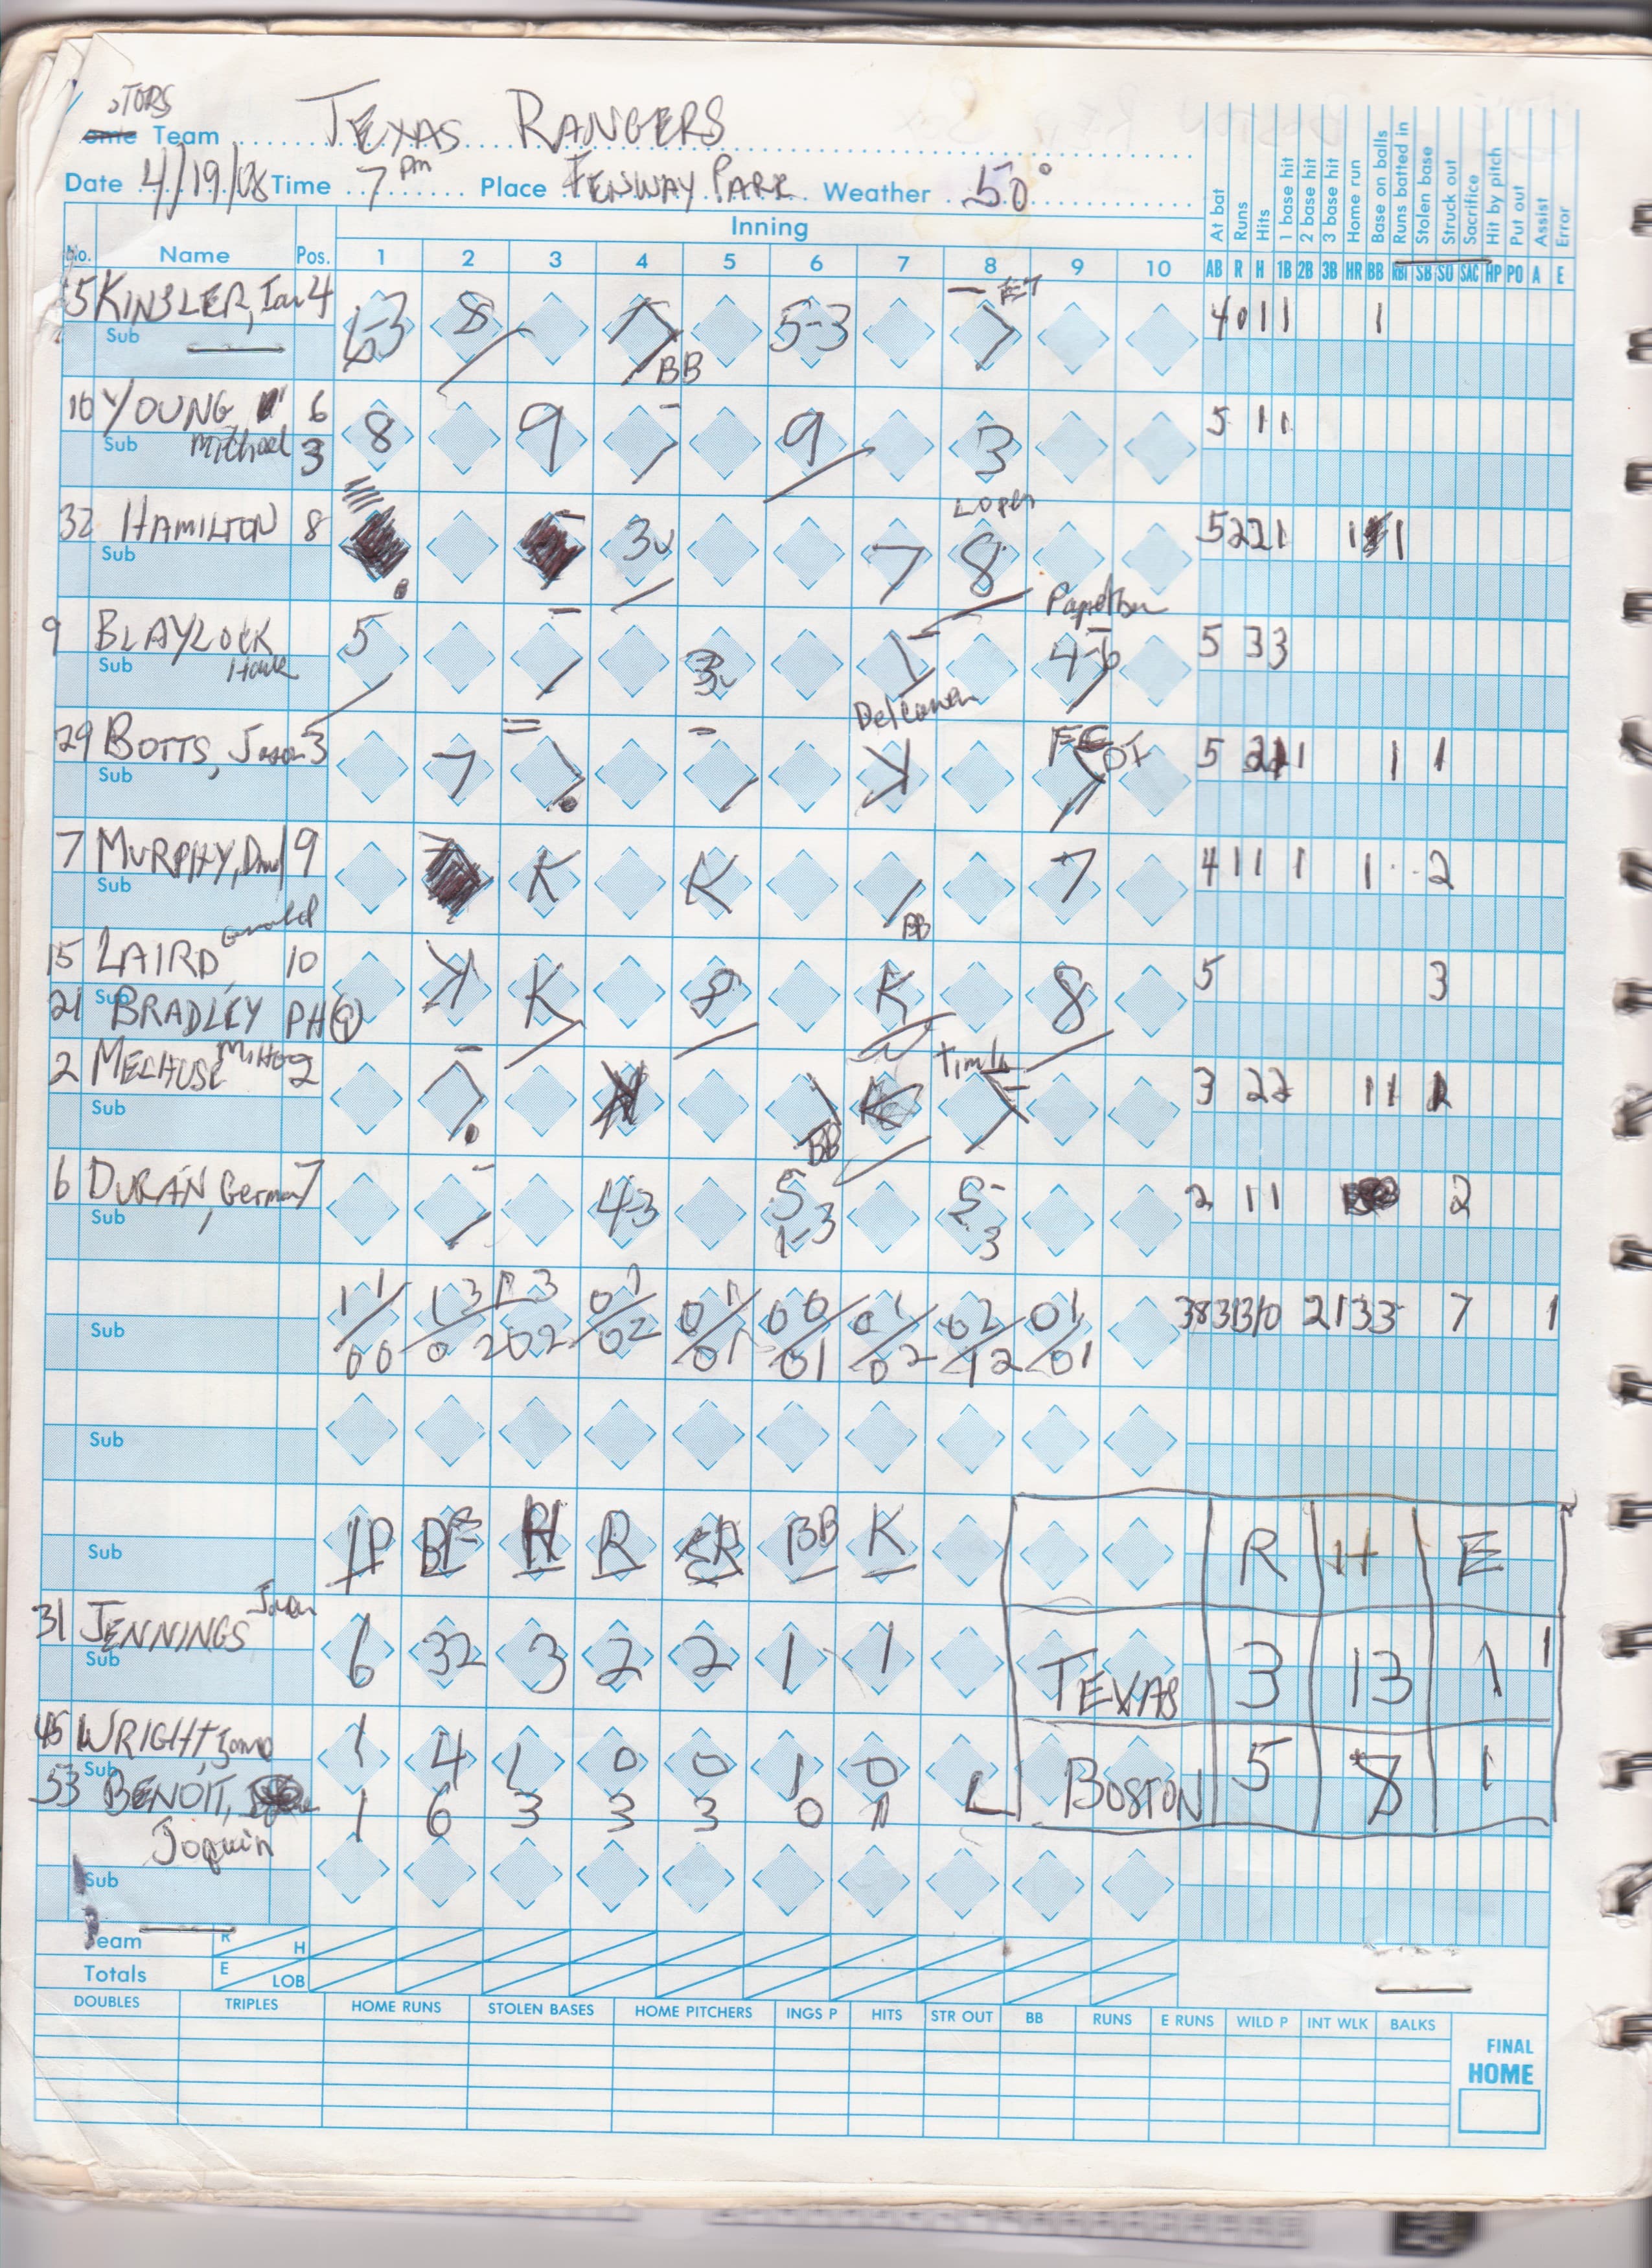 TORS
Team TEXAS RANGERS
Date 4/19/08 Time 7 pm Place FENWAY PARK Weather 50°
Inning
No. Name Pos. 1 2 3 4 5 6 7 8 9 10
At bat Runs Hits 1 base hit 2 base hit 3 base hit Home run Base on balls Runs batted in Stolen base Struck out Sacrifice Hit by pitch Put out Assist Error
AB R H 1B 2B 3B HR BB RBI SB SO SAC HP PO A E
5 KINSLER, Ian 4 6-3 8 7 BB 5-3 E7 7 4 0 1 1 1
Sub
10 YOUNG 6 8 9 9 3 5 1 1
Sub Michael 3
32 HAMILTON 8 3u 7 Lopez 8 5 2 2 1 1 1
Sub
9 BLAYLOCK 5 3u Papelbon 4-6 5 3 3
Sub Hank
Delcarmen
29 BOTTS, Jason 3 7 K FC 5 1 1
Sub
7 MURPHY, 9 K K BB 7 4 1 1 1 1 2
Sub
15 LAIRD Gerald 10 K K 8 K 8 5 3
Sub
21 BRADLEY PH 9
2 MELHUSE 2 BB Timlin 3 2 2 1 1
Sub
6 DURAN, German 7 4-3 5 1-3 5-3 2 1 1 2
Sub
1 1 / 0 0 1 3 / 0 2 1 3 / 0 2 0 1 / 0 2 0 1 / 0 1 0 0 / 0 1 0 1 / 0 2 0 2 / 1 2 0 1 / 0 1 38 3 13 10 2 1 3 3 7 1
Sub
Sub
IP BF H R ER BB K R H E
Sub
31 JENNINGS Jason 6 32 3 2 2 1 1 TEXAS 3 13 1 1
Sub
45 WRIGHT, 1 4 1 0 0 1 0
Sub
53 BENOIT, 1 6 3 3 3 0 1 L BOSTON 5 8 1
Joquin
Sub
Team R H
Totals E LOB
DOUBLES TRIPLES HOME RUNS STOLEN BASES HOME PITCHERS INGS P HITS STR OUT BB RUNS E RUNS WILD P INT WLK BALKS
FINAL
HOME